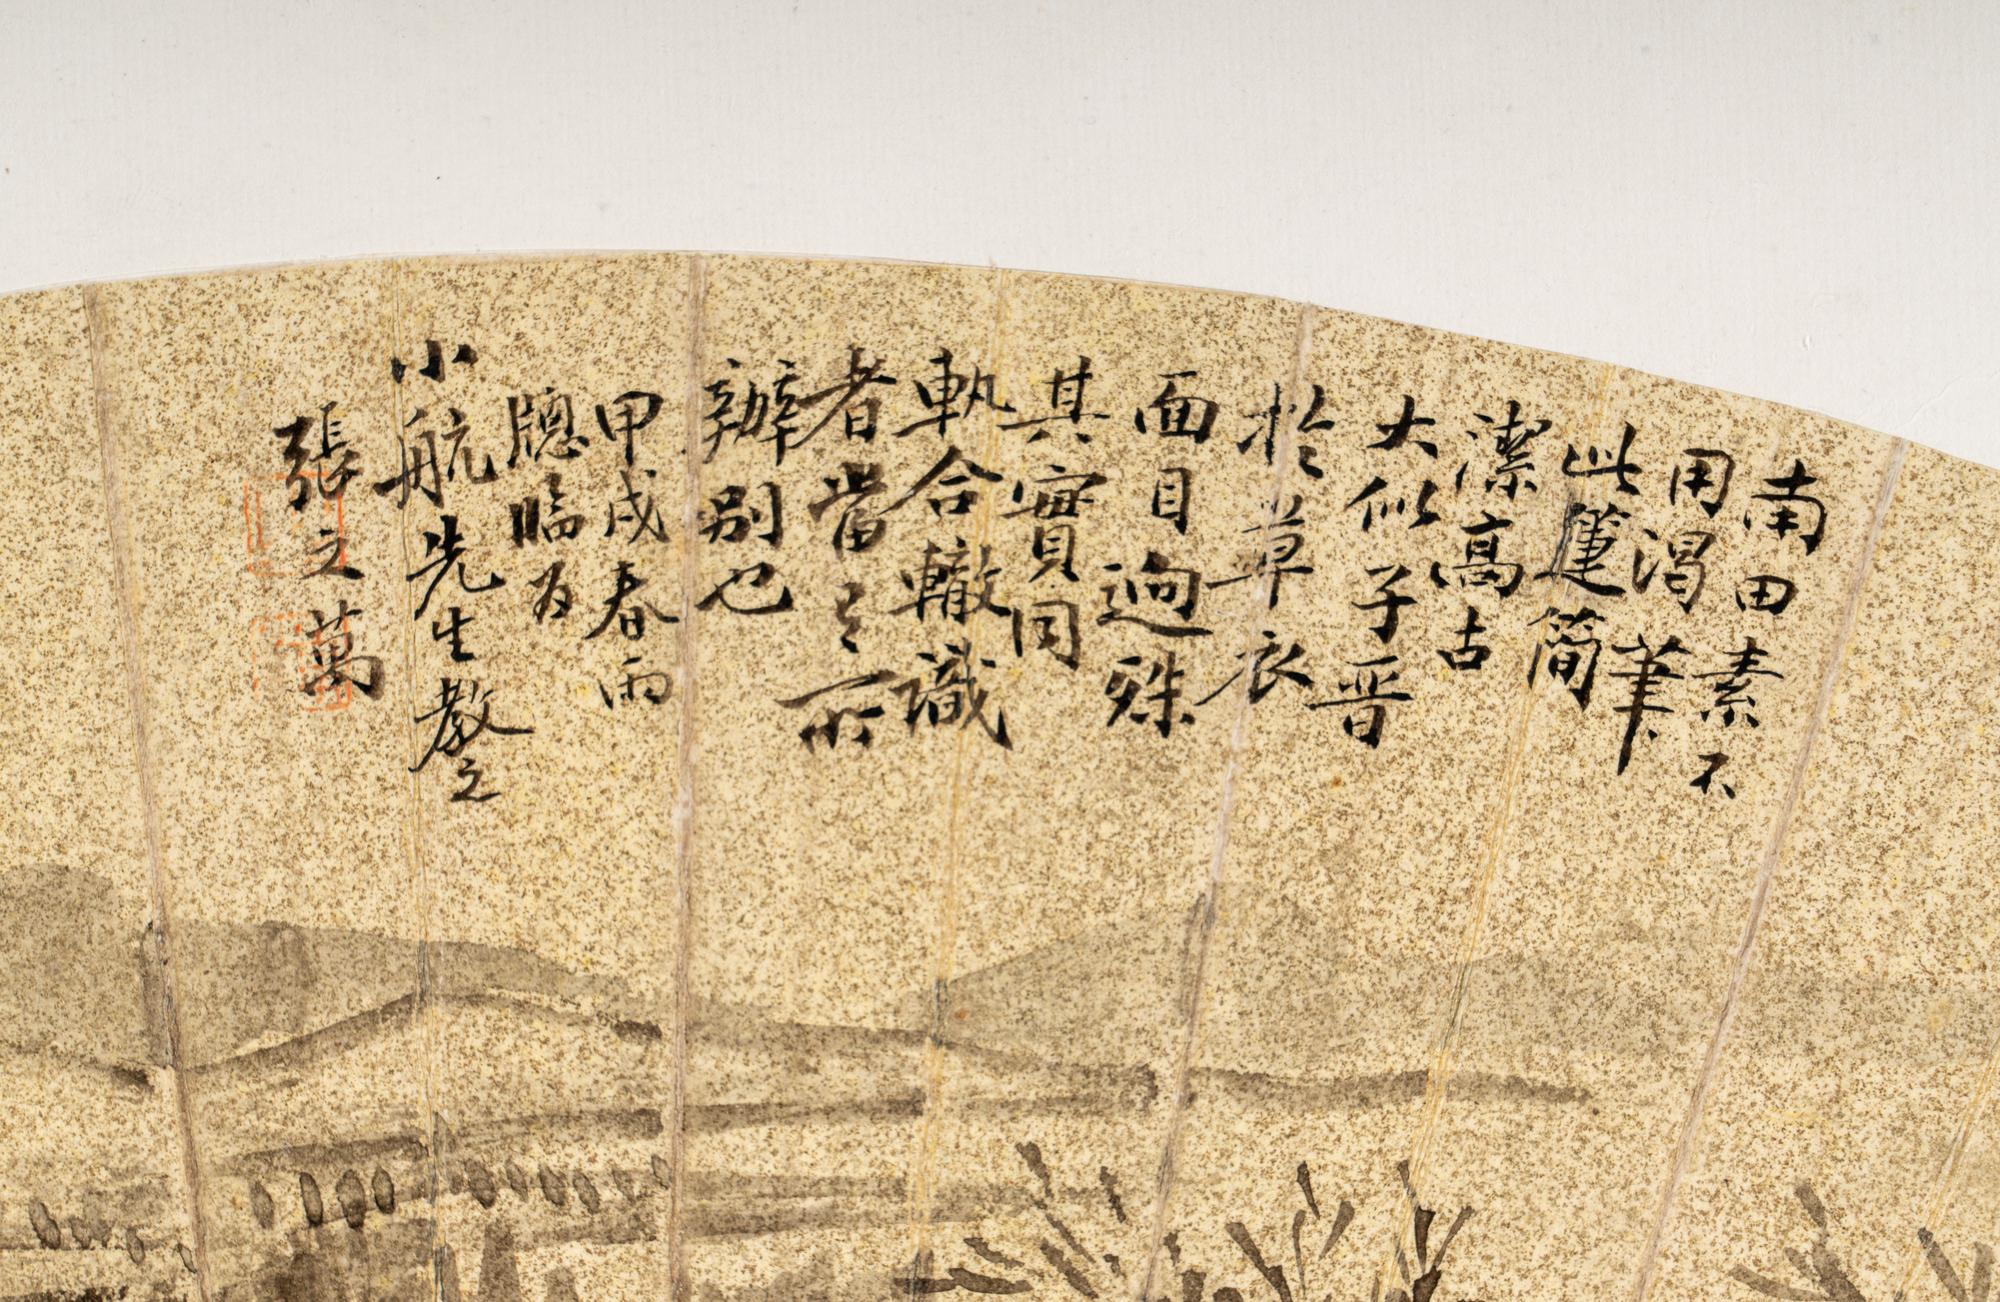 南田素不
用渴筆
此箑簡
潔高古
大似子晋
於草衣
面目迥殊
其實同
軌合轍識
者當已所
辦别也
甲戌春雨
牕臨为
小航先生教之
張之萬